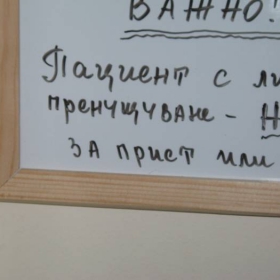 ВАЖНО!
Пациент с ли
пренчщчване - Н
ЗА прист или